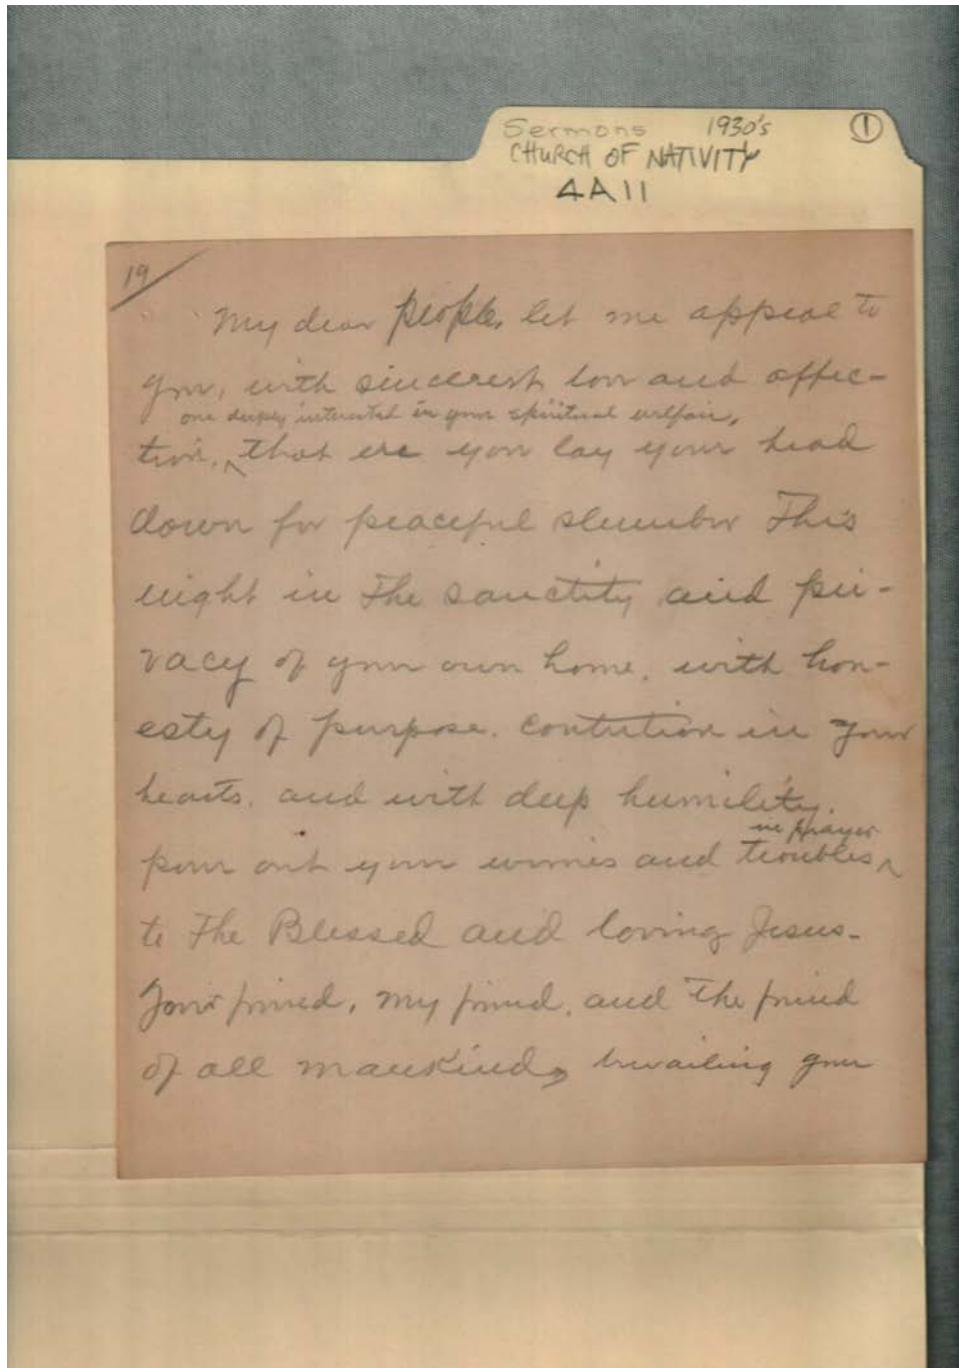 Sermons 1930's ①
CHURCH OF NATIVITY
4A11
19
My dear people, let me appeal to
you, with sincerest love and affec-
one deeply interested in your spiritual welfair,
tion, ^ that ere you lay your head
down for peaceful slumber This
night in The sanctity and pri-
vacy of your own home, with hon-
esty of purpose. contrition in your
hearts. and with deep humility.
in prayer
pour out your worries and troubles ^
to The Blessed and loving Jesus-
Your friend, my friend, and The friend
of all mankind, bewailing your